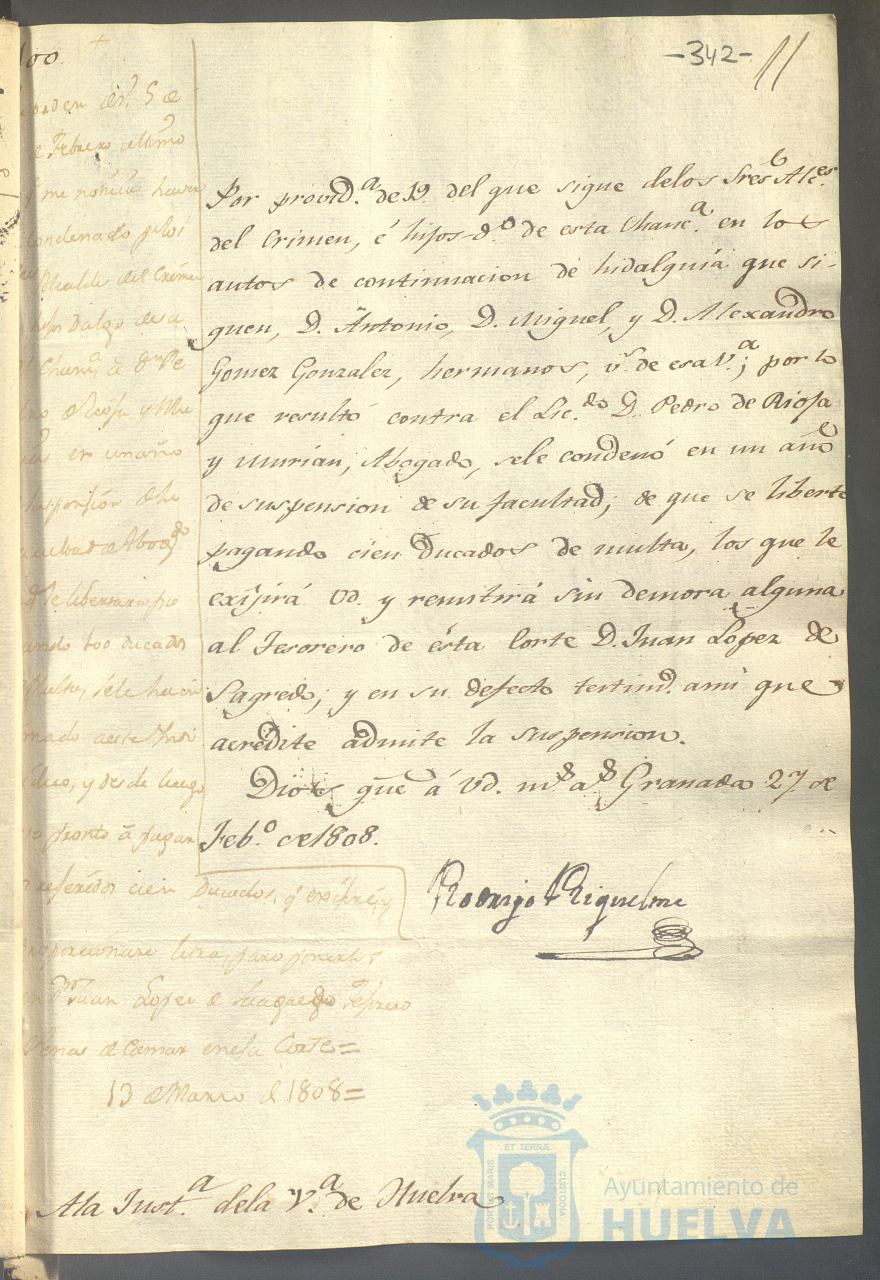 -342- 11
100.
orden de V. S. de
de Febrero ultimo
q.e me noticia haver
condenado p.r los
Alcalde del Crimen
hijos Dalgo de esa
R.l Chan.a à D.n Pe
dro de Rioja y Mu
en un año
suspension de la
facultad de Abog.do
q.e se libertarà pa
gando 100 ducados
multa, se le ha in
timado
y desde luego
pronto à pagar
referidos cien Ducados, q.e exijiré, y
proporcionare letra, para ponerlos
en D.n Juan Lopez de Sagredo Tesorero
Penas de Camar en esa Corte=
13 de Marzo de 1808=
Por provid.a de 19. del que sigue de los Sres. Alc.es
del Crimen, é hijos-d.o de esta Chanc.a en los
autos de continuacion de hidalguía que si-
guen, D. Antonio, D. Miguel, y D. Alexandro
Gomez Gonzalez, hermanos, v.s de esa V.a; por lo
que resultó contra el Lic.do D. Pedro de Rioja
y Murían, Abogado, se le condenó en un año
de suspension de su facultad, de que se liberte
pagando cien Ducados de multa, los que le
exijirá Vd. y remitirá sin demora alguna
al Tesorero de ésta Corte D. Juan Lopez de
Sagredo; y en su defecto testim.o a mi que
acredite admite la suspension.
Dios gũe á Vd. m.s a.s Granada 27 de
Feb.o de 1808.
Rodrigo Riquelme
A la Just.a de la V.a de Huelva
PORTUS MARIS ET TERRÆ CUSTODIA
Ayuntamiento de
HUELVA